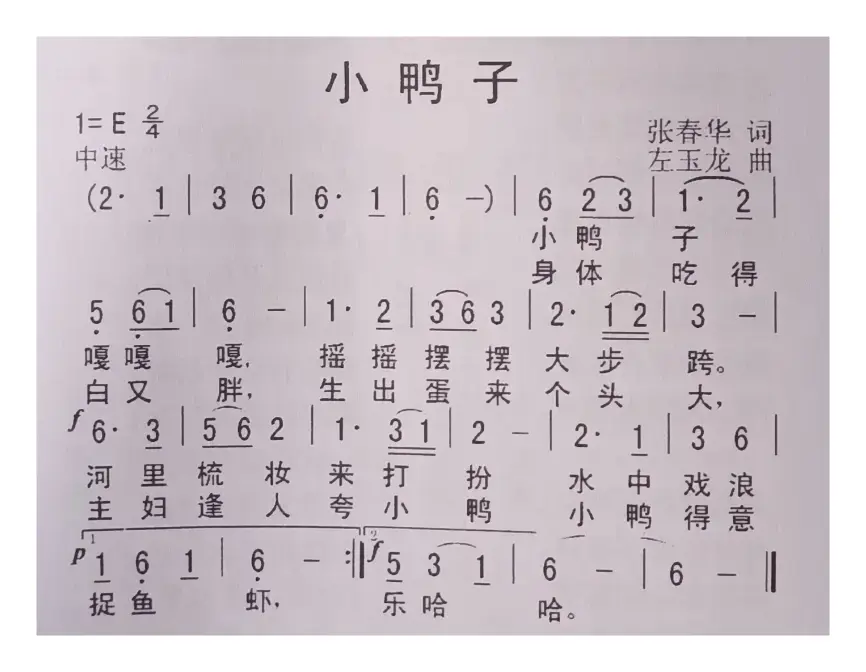 小鸭子
1=E 2/4
张春华 词
中速
左玉龙 曲
(2· 1 | 3 6 | 6· 1 | 6 –) | 6 2 3 | 1· 2 |
小 鸭 子
身 体 吃 得
5 6 1 | 6 – | 1· 2 | 3 6 3 | 2· 1 2 | 3 – |
嘎 嘎 嘎, 摇 摇 摆 摆 大 步 跨。
白 又 胖, 生 出 蛋 来 个 头 大,
f 6· 3 | 5 6 2 | 1· 3 1 | 2 – | 2· 1 | 3 6 |
河 里 梳 妆 来 打 扮 水 中 戏 浪
主 妇 逢 人 夸 小 鸭 小 鸭 得 意
1 2
p 1 6 1 | 6 – :‖ f 5 3 1 | 6 – | 6 – ‖
捉 鱼 虾, 乐 哈 哈。